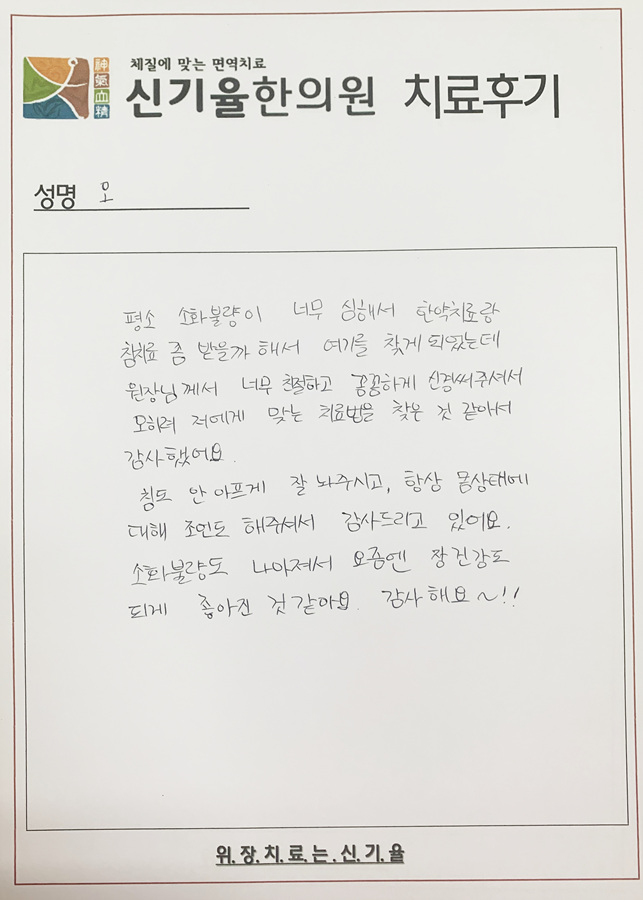 체질에 맞는 면역치료
神氣血精
신기율한의원 치료후기
성명 오
평소 소화불량이 너무 심해서 한약치료랑
침치료 좀 받을까 해서 여기를 찾게 되었는데
원장님께서 너무 친절하고 꼼꼼하게 신경써주셔서
오히려 저에게 맞는 치료법을 찾은 것 같아서
감사했어요.
침도 안 아프게 잘 놔주시고, 항상 몸상태에
대해 조언도 해주셔서 감사드리고 있어요.
소화불량도 나아져서 요즘엔 장건강도
되게 좋아진 것 같아요. 감사해요~!!
위.장.치.료.는.신.기.율